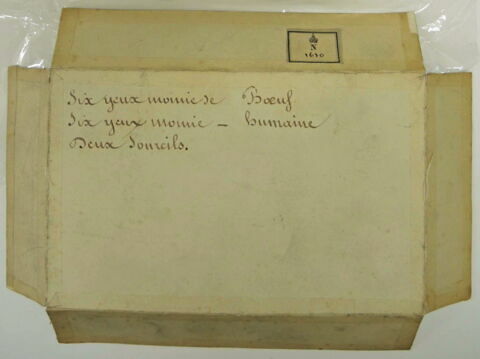 N
1610
Six yeux momie de Bœuf
Six yeux momie – humaine
Deux Sourcils.